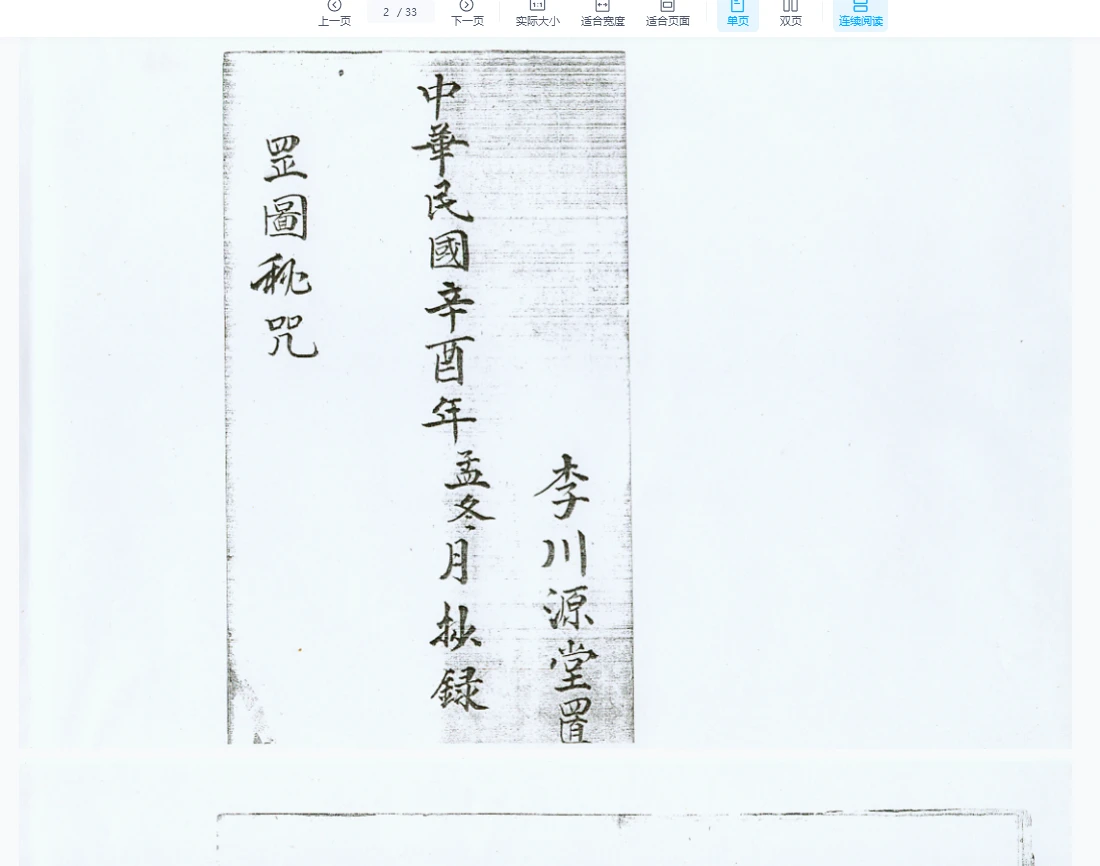 上一页
2 / 33
下一页
1:1
实际大小
适合宽度
适合页面
单页
双页
连续阅读
李川源堂置
中華民國辛酉年孟冬月抄録
罡圖秘咒